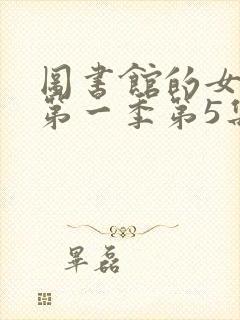 圖書館的女
第一季第5集
畢磊